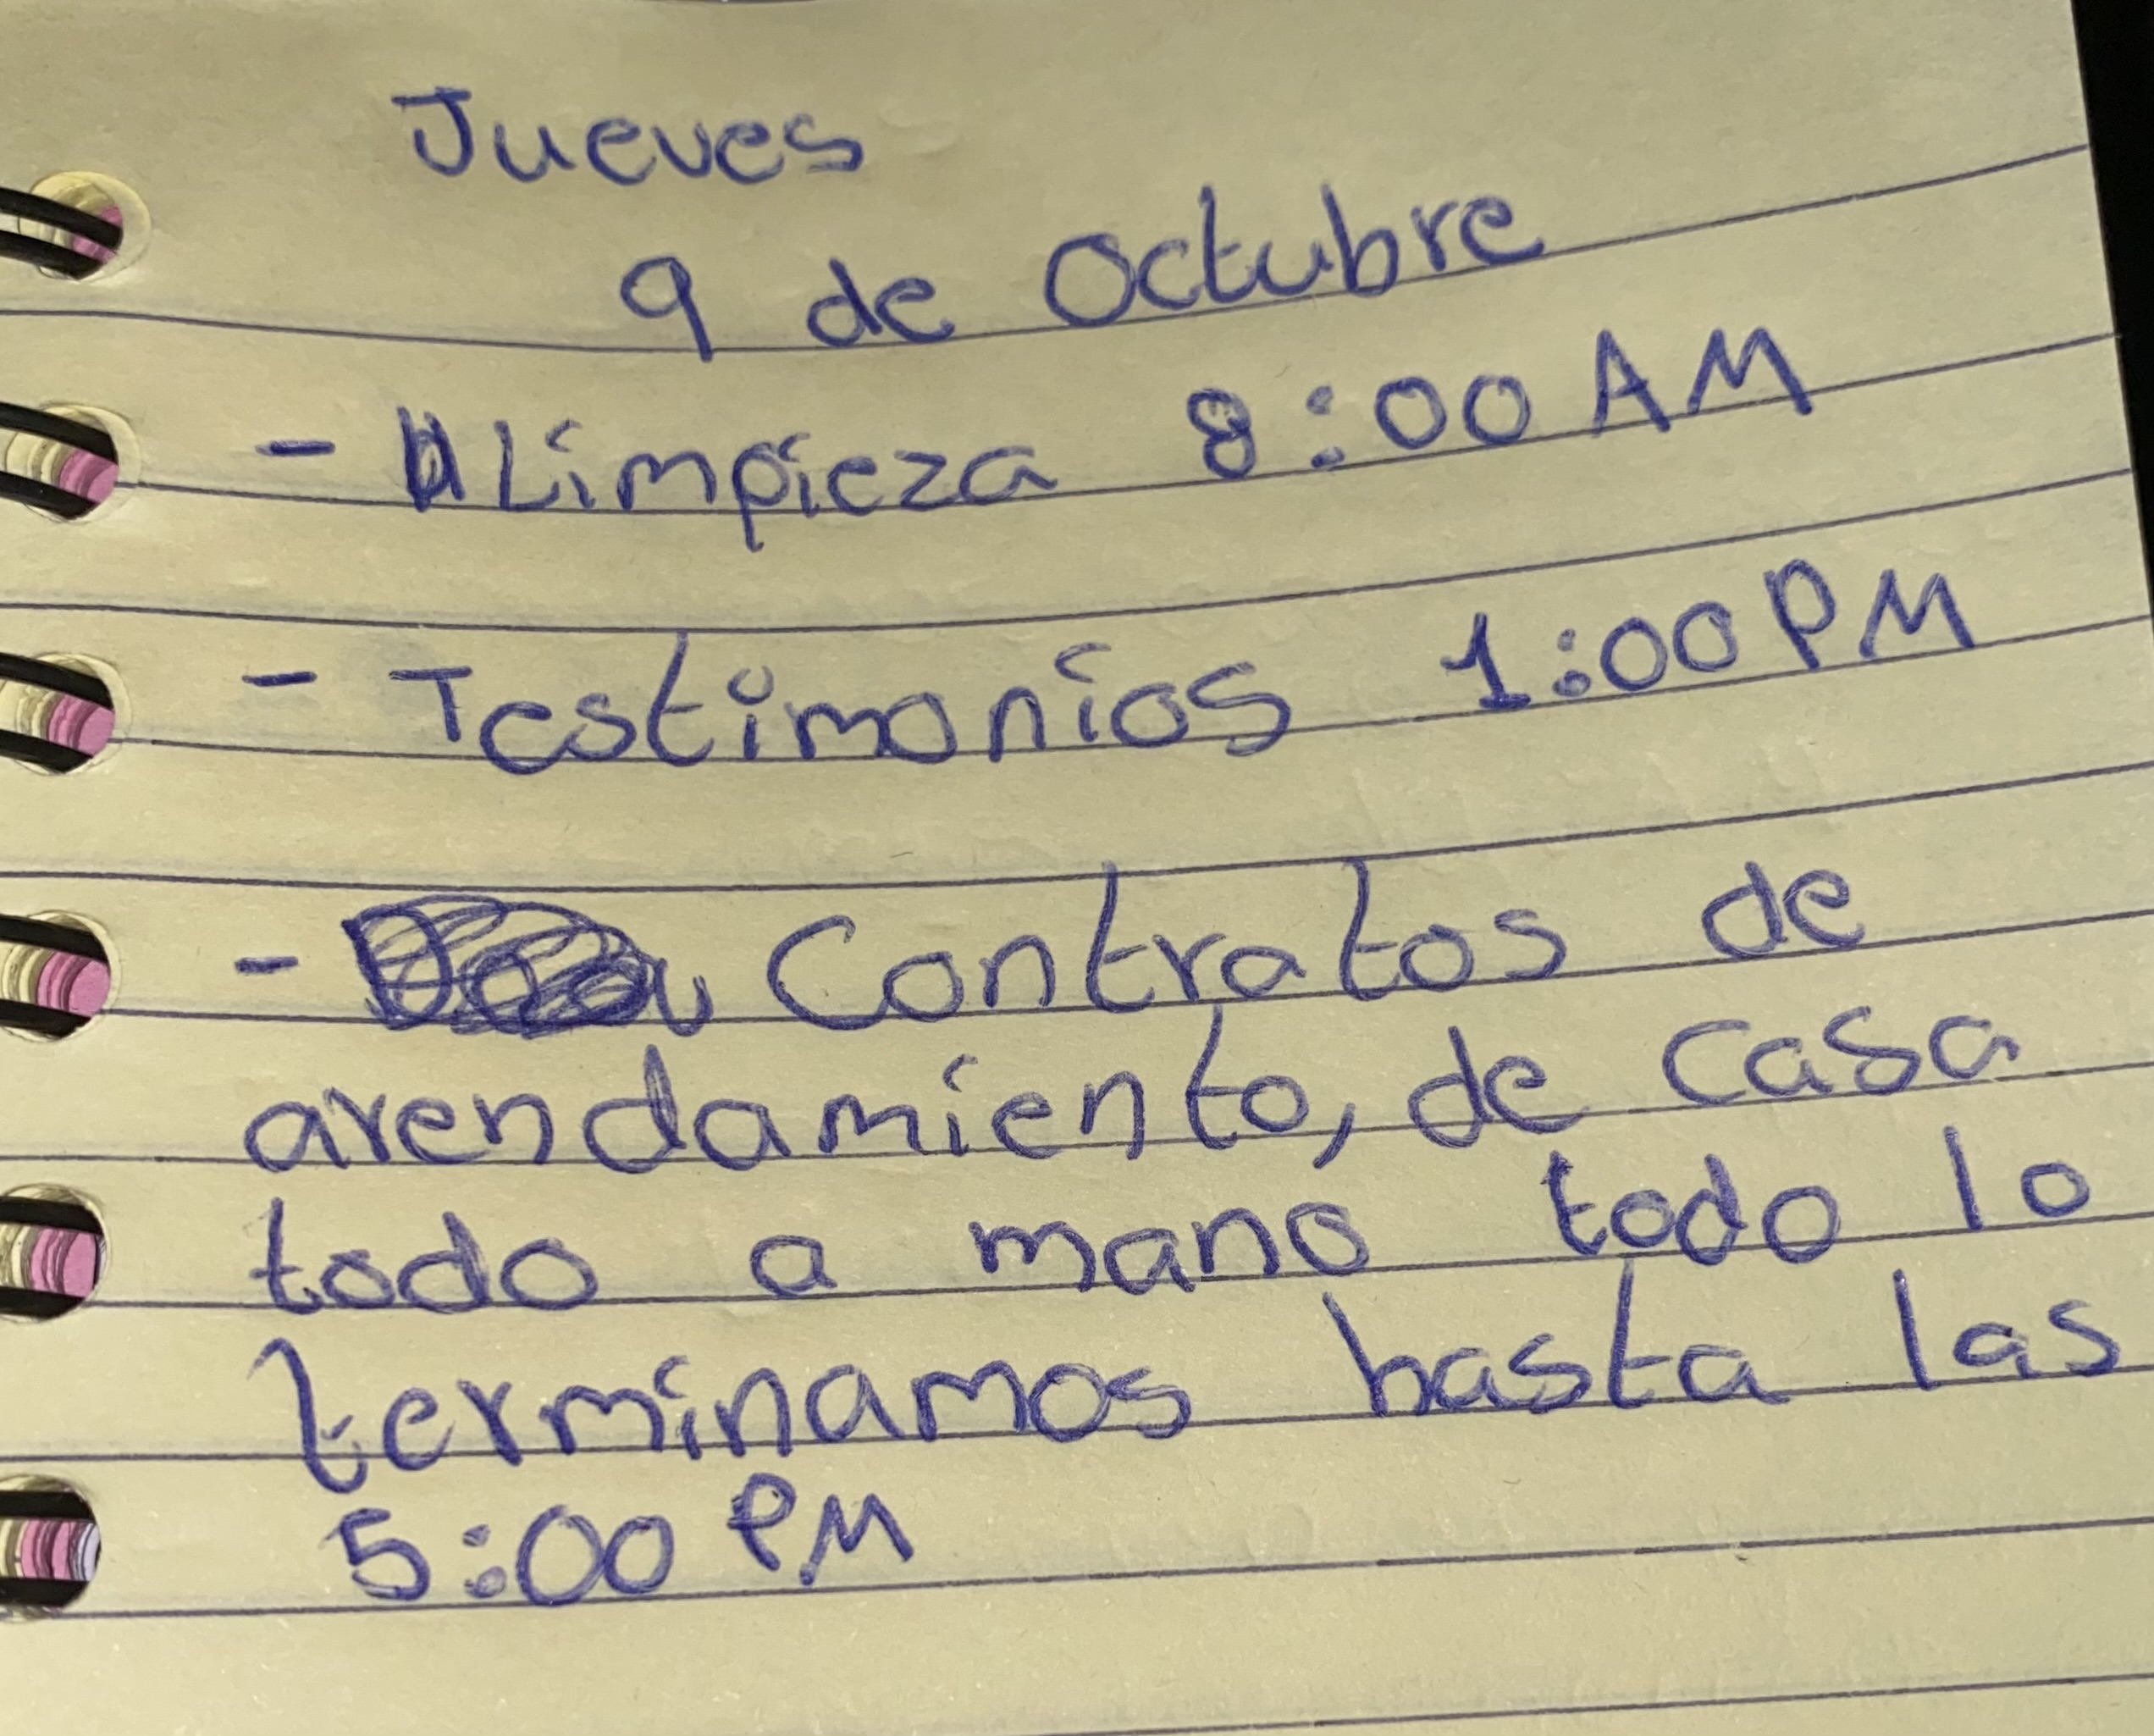 Jueves
9 de Octubre
- Limpieza 8:00 AM
- Testimonios 1:00 PM
- Contratos de
arendamiento, de casa
todo a mano todo lo
terminamos hasta las
5:00 PM